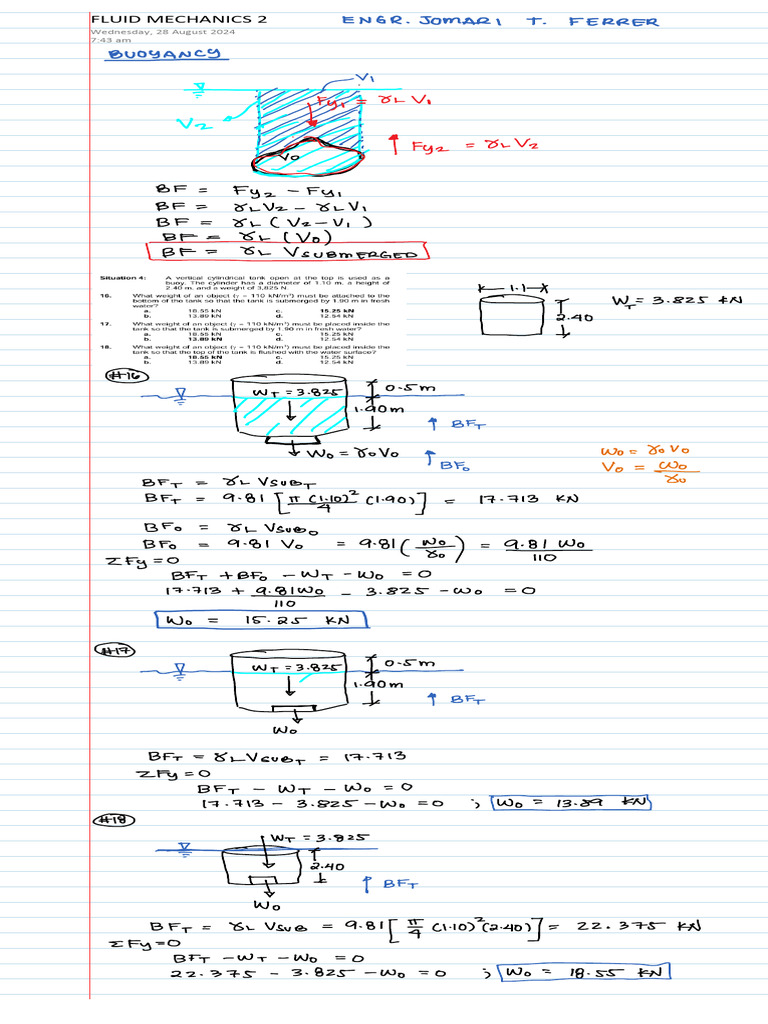 FLUID MECHANICS 2
ENGR. JOMARI T. FERRER
Wednesday, 28 August 2024
7:43 am
BUOYANCY
V1
Fy1 = γL V1
V2
Fy2 = γL V2
Vo
BF = Fy2 - Fy1
BF = γL V2 - γL V1
BF = γL (V2 - V1)
BF = γL (Vo)
BF = γL VSUBMERGED
Situation 4: A vertical cylindrical tank open at the top is used as a
buoy. The cylinder has a diameter of 1.10 m, a height of
2.40 m, and a weight of 3,825 N.
16. What weight of an object (γ = 110 kN/m³) must be attached to the
bottom of the tank so that the tank is submerged by 1.90 m in fresh
water?
a. 18.55 kN c. 15.25 kN
b. 13.89 kN d. 12.54 kN
17. What weight of an object (γ = 110 kN/m³) must be placed inside the
tank so that the tank is submerged by 1.90 m in fresh water?
a. 18.55 kN c. 15.25 kN
b. 13.89 kN d. 12.54 kN
18. What weight of an object (γ = 110 kN/m³) must be placed inside the
tank so that the top of the tank is flushed with the water surface?
a. 18.55 kN c. 15.25 kN
b. 13.89 kN d. 12.54 kN
1.1
2.40
WT = 3.825 KN
#16
WT = 3.825
0.5m
1.90m
BFT
Wo = γo Vo
BFo
Wo = γo Vo
Vo = Wo/γo
BFT = γL VSUBT
BFT = 9.81 [π(1.10)²/4 (1.90)] = 17.713 KN
BFo = γL VSUBo
BFo = 9.81 Vo = 9.81 (Wo/γo) = 9.81 Wo/110
ΣFy = 0
BFT + BFo - WT - Wo = 0
17.713 + 9.81Wo/110 - 3.825 - Wo = 0
Wo = 15.25 KN
#17
WT = 3.825
0.5m
1.90m
BFT
Wo
BFT = γL VSUBT = 17.713
ΣFy = 0
BFT - WT - Wo = 0
17.713 - 3.825 - Wo = 0 ; Wo = 13.89 KN
#18
WT = 3.825
2.40
BFT
Wo
BFT = γL VSUB = 9.81 [π/4 (1.10)² (2.40)] = 22.375 KN
ΣFy = 0
BFT - WT - Wo = 0
22.375 - 3.825 - Wo = 0 ; Wo = 18.55 KN